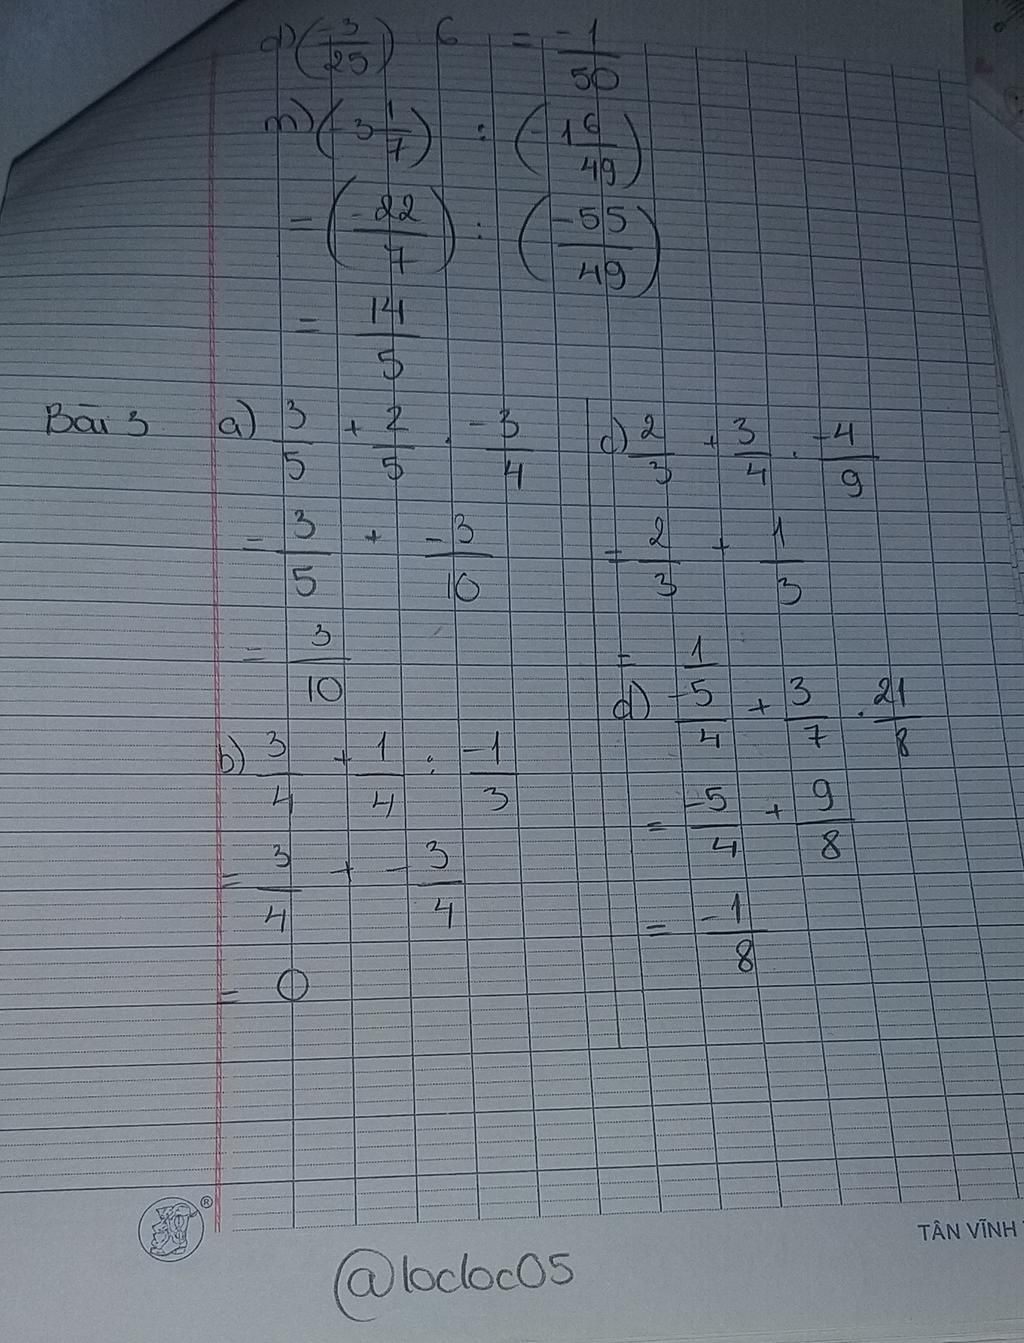 (-3/25) 6 = -1/50
m) (-3 1/7) : (-1 6/49)
= (-22/7) : (-55/49)
= 14/5
Bài 3 a) 3/5 + 2/5 . -3/4
= 3/5 + -3/10
= 3/10
b) 3/4 + 1/4 : -1/3
= 3/4 + -3/4
= 0
c) 2/3 + 3/4 . -4/9
= 2/3 + 1/3
= 1/
d) -5/4 + 3/7 . 21/8
= -5/4 + 9/8
= -1/8
®
TÂN VĨNH
@locloc05